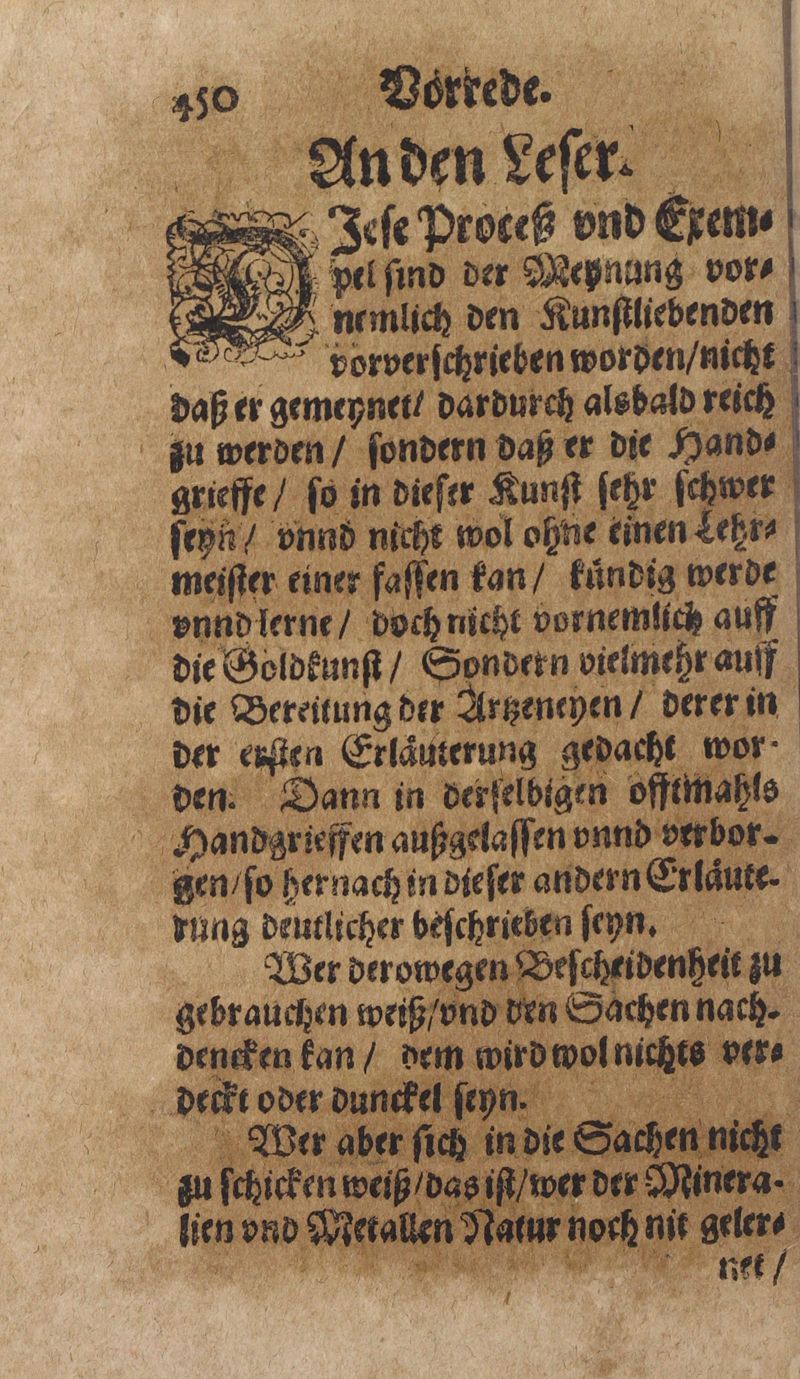 450 Vorrede.
An den Leser.
DJese Proceß vnd Exem⸗
pel sind der Meynung vor⸗
nemlich den Kunstliebenden
vorverschrieben worden/nicht
daß er gemeynet/ dardurch alsbald reich
zu werden/ sondern daß er die Hand⸗
grieffe/ so in dieser Kunst sehr schwer
seyn/ vnnd nicht wol ohne einen Lehr⸗
meister einer fassen kan/ kündig werde
vnnd lerne/ doch nicht vornemlich auff
die Goldkunst/ Sondern vielmehr auff
die Bereitung der Artzeneyen/ derer in
der ersten Erläuterung gedacht wor-
den. Dann in derselbigen offtmahls
Handgrieffen außgelassen vnnd verbor-
gen/so hernach in dieser andern Erläute-
rung deutlicher beschrieben seyn.
Wer derowegen Bescheidenheit zu
gebrauchen weiß/vnd den Sachen nach-
dencken kan/ dem wird wol nichts ver⸗
deckt oder dunckel seyn.
Wer aber sich in die Sachen nicht
zu schicken weiß/das ist/wer der Minera-
lien vnd Metallen Natur noch nit geler⸗
net/